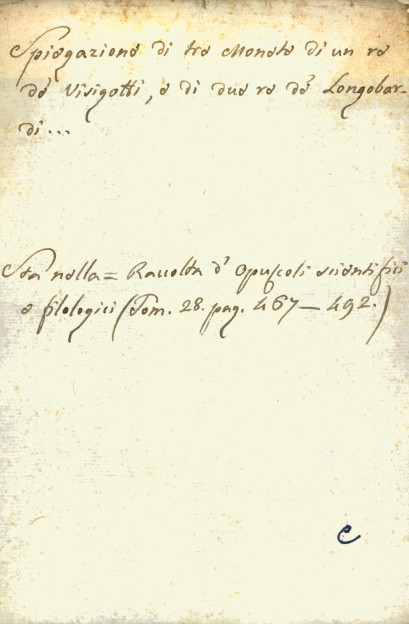 Spiegazione di tre Monete di un re
de' Visigotti, e di due re de' Longobar-
di...
Sta nella = Raccolta d' Opuscoli scientifici
e filologici (Tom. 28. pag. 467 — 492.)
e